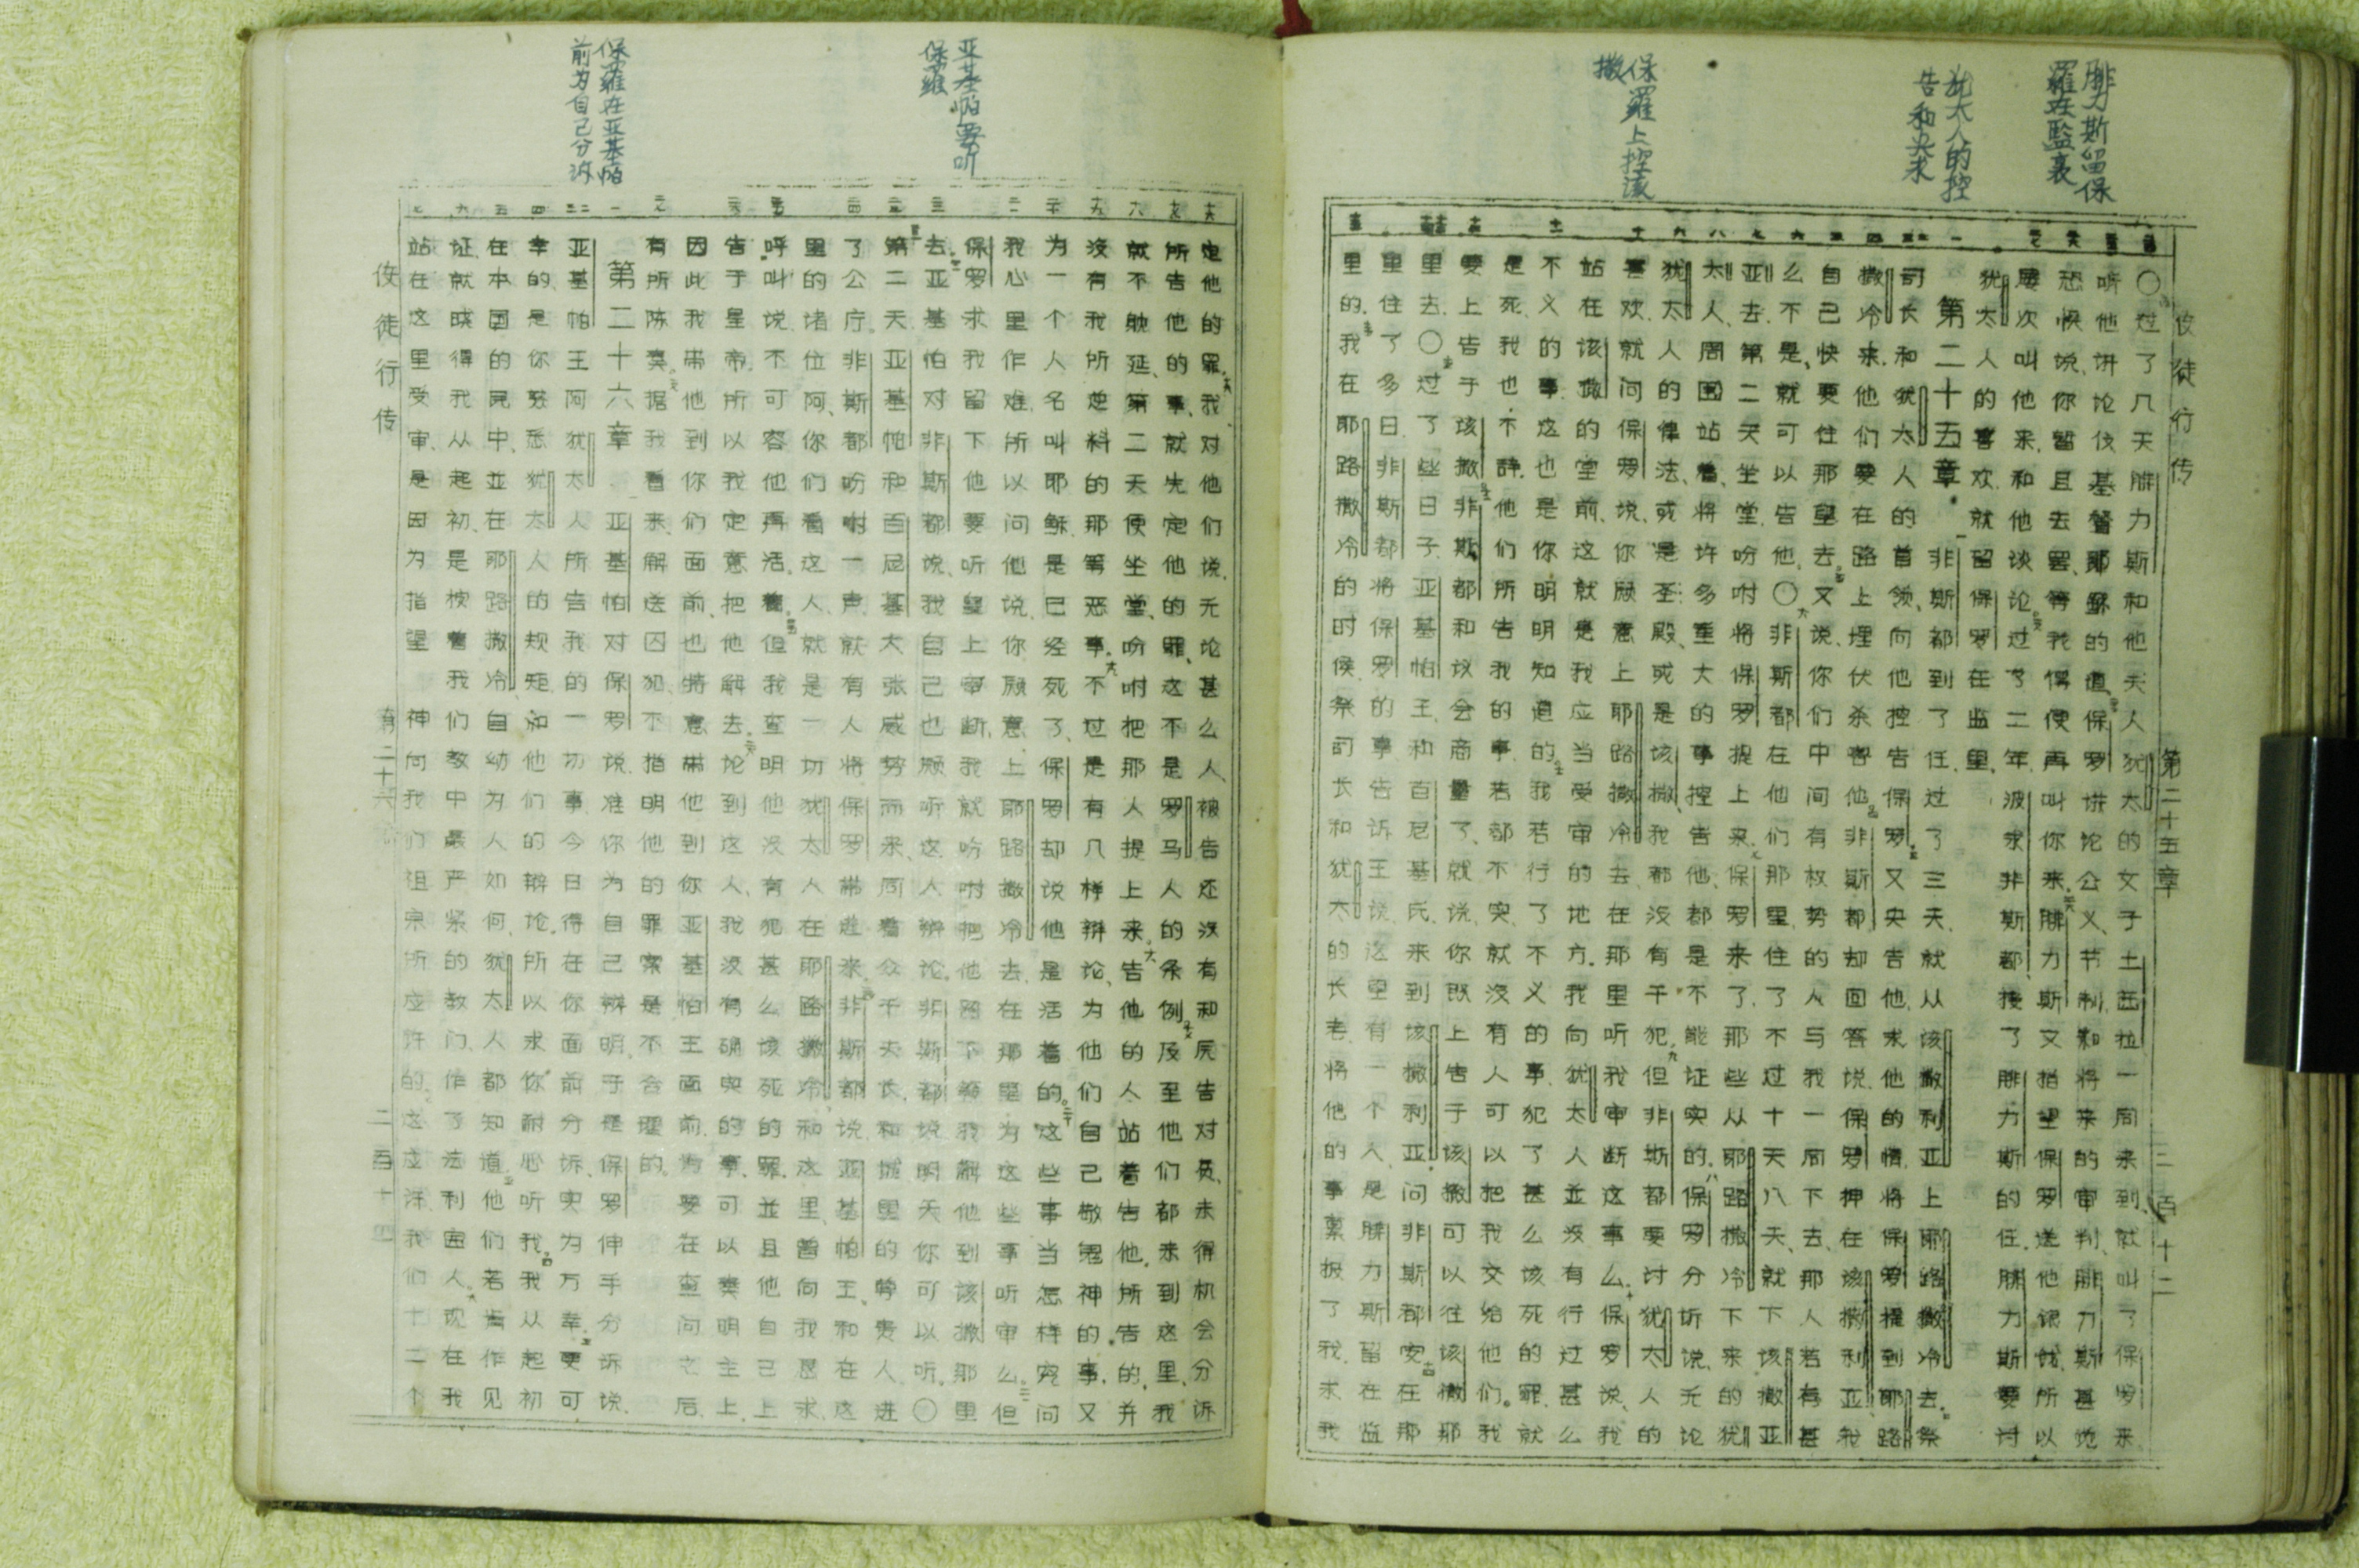 腓力斯留保
羅在監裏
犹太人的控
告和央求
保羅上控该
撒
使徒行传 第二十五章
〇过了几天腓力斯和他夫人犹太的女子土西拉一同来到、就叫了保罗来
听他讲论伩基督耶稣的道、保罗讲论公义、节制、和将来的审判、腓力斯甚觉
恐惧、说、你暂且去罢、等我得便再叫你来、腓力斯又指望保罗送他银钱、所以
屡次叫他来、和他谈论、过了二年、波求非斯都接了腓力斯的任、腓力斯要讨
犹太人的喜欢、就留保罗在监里、
第二十五章 非斯都到了任、过了三天、就从该撒利亚上耶路撒冷去、祭
司长和犹太人的首领、向他控告保罗、又央告他、求他的情、将保罗提到耶路
撒冷来、他们要在路上埋伏杀害他、非斯都却回答说、保罗押在该撒利亚、我
自己快要住那望去、又说、你们中间有权势的人与我一同下去、那人若有甚
么不是、就可以告他〇非斯都在他们那里住了不过十天八天、就下该撒亚
亚去、第二天坐堂、吩咐将保罗提上来、保罗来了、那些从耶路撒冷下来的犹
太人、周围站着、将许多重大的事控告他、都是不能证实的、保罗分訴说、无论
犹太人的律法、或是圣殿、或是该撒、我都没有干犯、但非斯都要讨犹太人的
喜欢、就问保罗说、你愿意上耶路撒冷去、在那里听我审断这事么、保罗说、我
站在该撒的堂前、这就是我应当受审的地方、我向犹太人並没有行过甚么
不义的事、这也是你明明知道的、我若行了不义的事、犯了甚么该死的罪、就
是死、我也不辞、他们所告我的事若都不实、就没有人可以把我交给他们、我
要上告于该撒、非斯都和议会商量了、就说、你既上告于该撒、可以往该撒那
里去〇过了些日子、亚基帕王和百尼基氏来到该撒利亚、问非斯都安、在那
里住了多日、非斯都将保罗的事告诉王、说、这里有一个人、是腓力斯留在监
里的、我在耶路撒冷的时候、祭司长和犹太的长老、将他的事禀报了我、求我
亚基帕要听
保羅
保羅在亚基帕
前为自己分诉
定他的罪、我对他们说、无论甚么人、被告还没有和原告对质、未得机会分诉
所告他的事、就先定他的罪、这不是罗马人的条例、及至他们都来到这里、我
就不躭延、第二天便坐堂、吩咐把那人提上来、告他的人站着告他、所告的、并
没有我所逆料的那等恶事、不过是有几样辩论、为他们自己敬鬼神的事、又
为一个人名叫耶稣、是已经死了、保罗却说他是活着的、这些事当怎样究问
我心里作难、所以问他说、你愿意上耶路撒冷去、在那里为这些事听审么、但
保罗求我留下他、要听皇上审断、我就吩咐把他留下、等我解他到该撒那里
去、亚基帕对非斯都说、我自己也愿听这人辩论、非斯都说、明天你可以听、〇
第二天、亚基帕和百尼基大张威势而来、同着众千夫长、和城里的尊贵人进
了公厅、非斯都吩咐一声、就有人将保罗带进来、非斯都说、亚基帕王、和在这
里的诸位阿、你们看这人、就是一切犹太人在耶路撒冷和这里、曾向我恳求、
呼叫说、不可容他再活着、但我查明他没有犯甚么该死的罪、並且他自己上
告于皇帝、所以我定意把他解去、论到这人、我没有确实的事、可以奏明主上、
因此我带他到你们面前、也特意带他到你亚基帕王面前、为要在查问之后
有所陈奏、据我看来、解送囚犯、不指明他的罪案是不合理的、
第二十六章 亚基帕对保罗说、准你为自己辩明、于是保罗伸手分诉说、
亚基帕王阿、犹太人所告我的一切事、今日得在你面前分诉、实为万幸、更可
幸的、是你熟悉犹太人的规矩、和他们的辩论、所以求你耐心听我、我从起初
在本国的民中、並在耶路撒冷、自幼为人如何、犹太人都知道、他们若肯作见
证、就晓得我从起初、是按着我们教中最严紧的教门、作了法利赛人、现在我
站在这里受审、是因为指望 神向我们祖宗所应许的、这应许我们十二个
使徒行传 第二十六章 二百十四